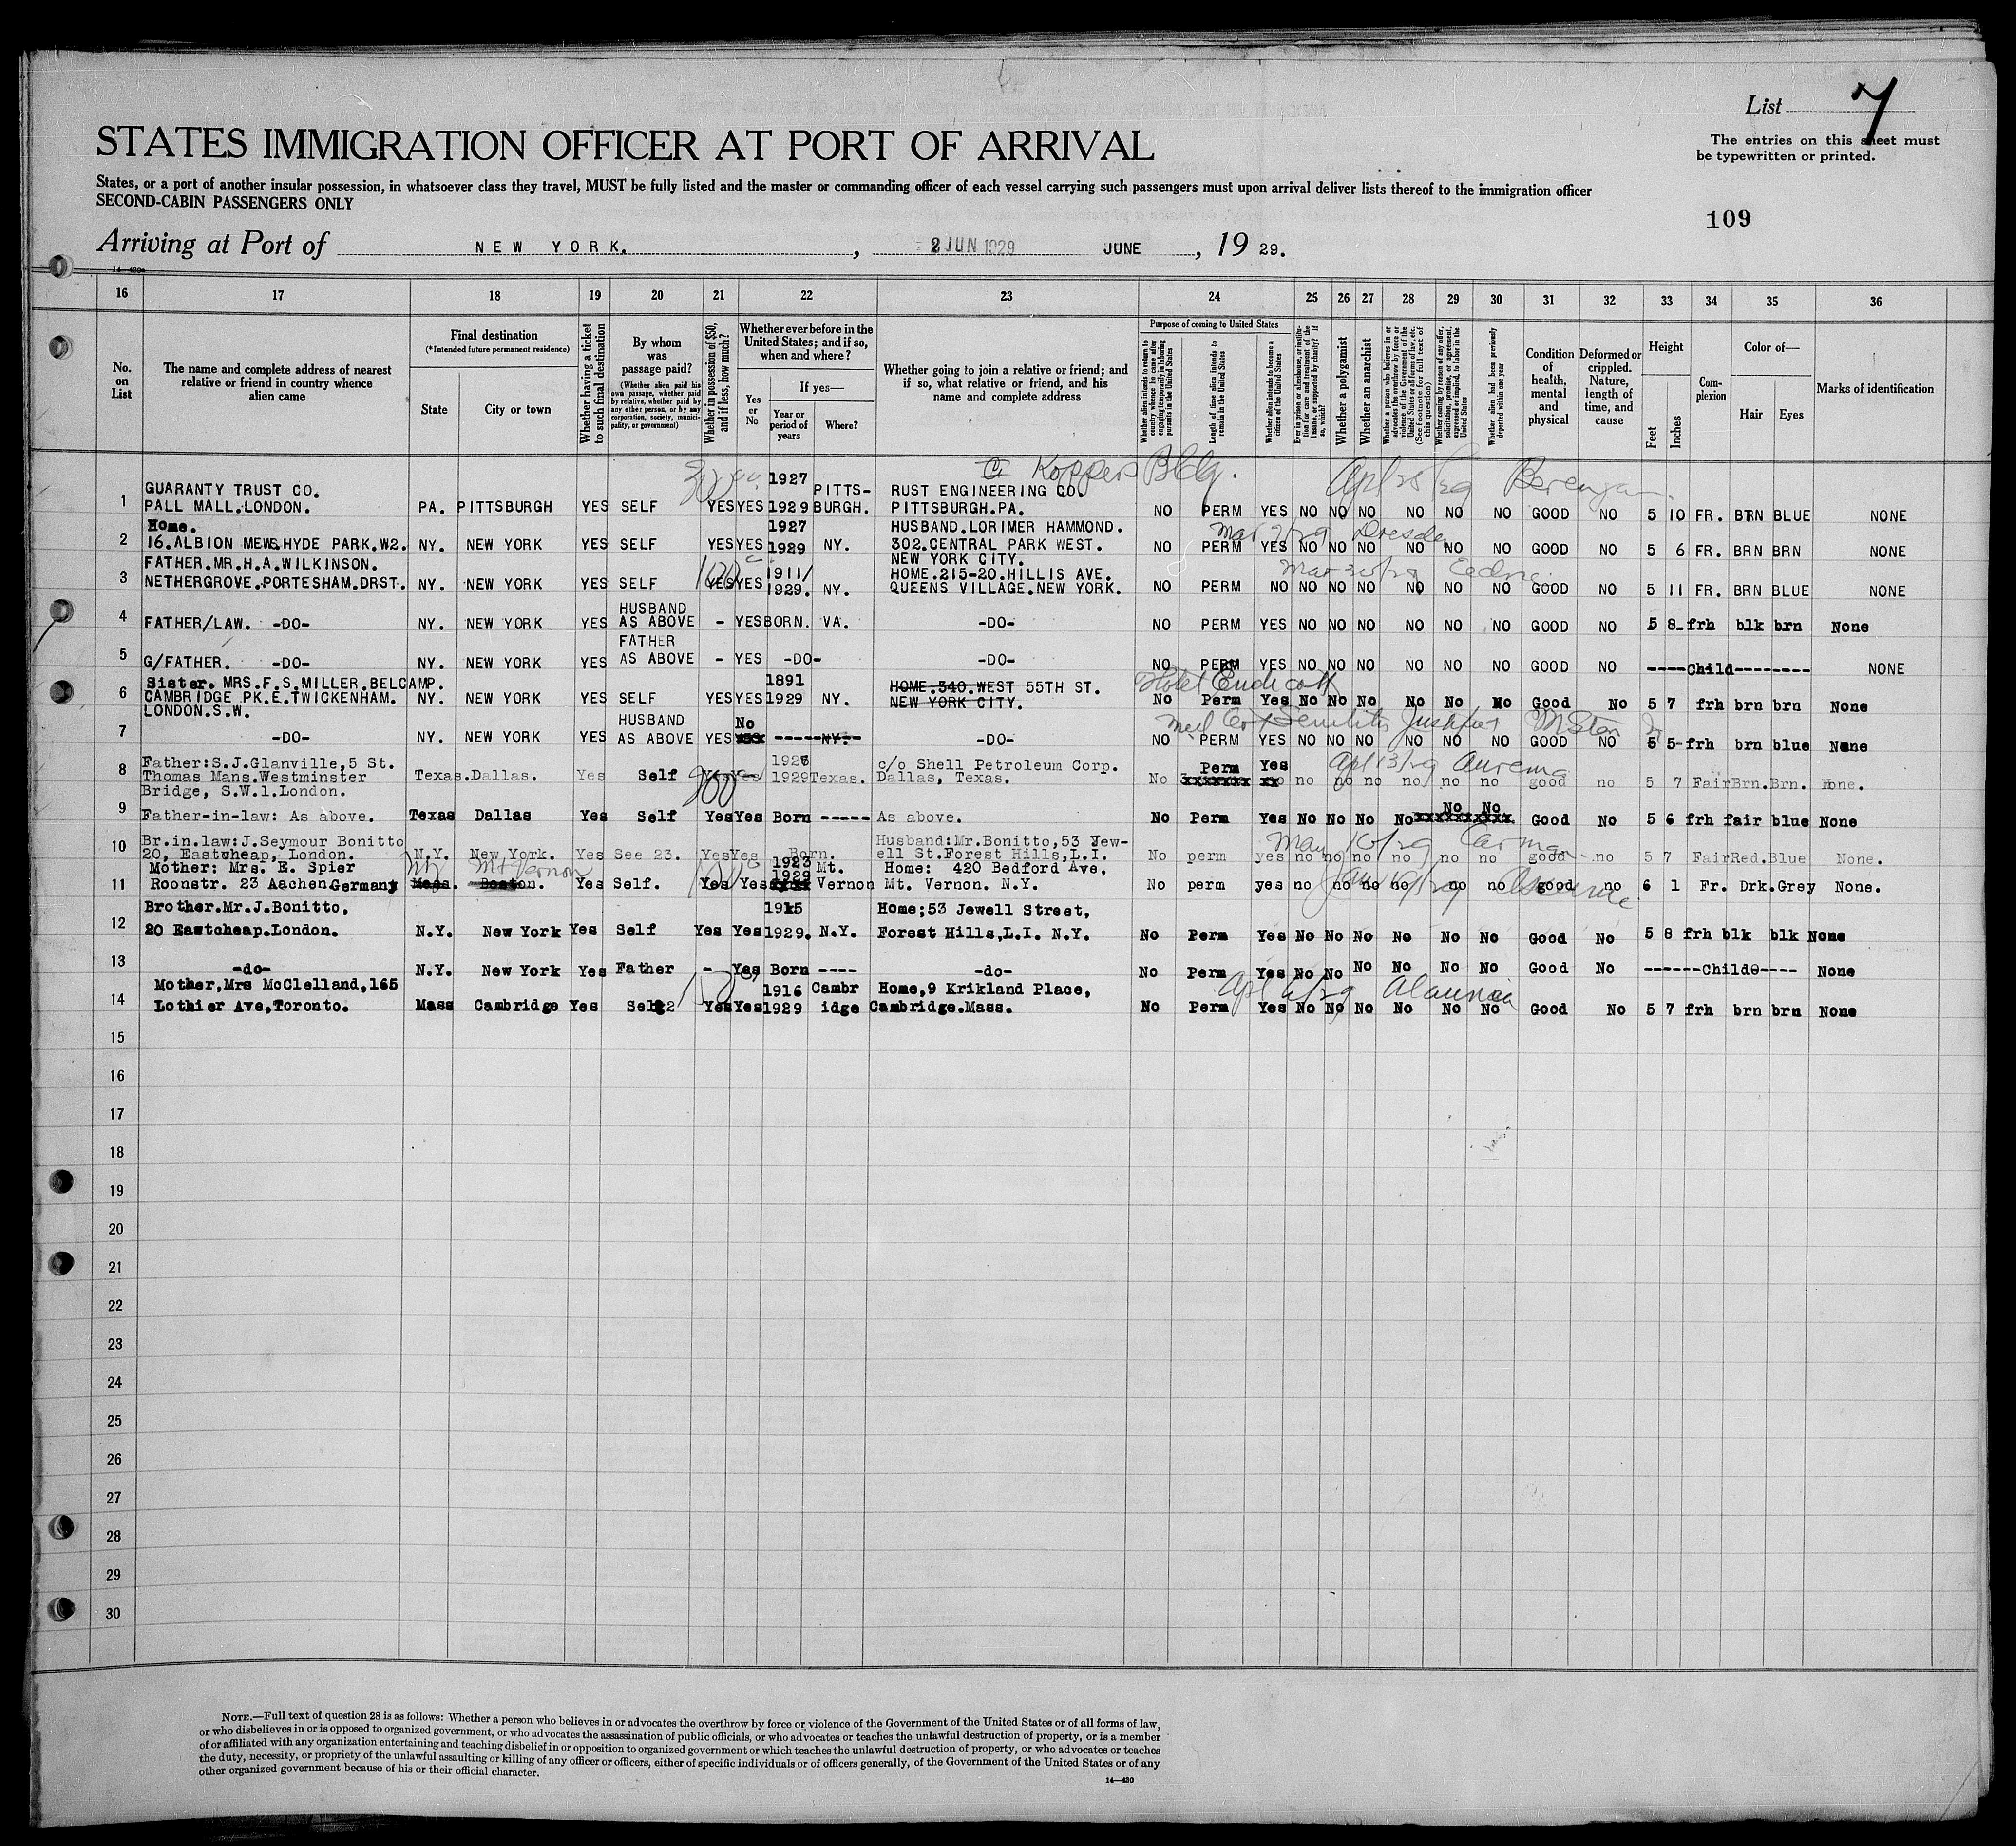 List 7
STATES IMMIGRATION OFFICER AT PORT OF ARRIVAL
The entries on this sheet must
be typewritten or printed.
States, or a port of another insular possession, in whatsoever class they travel, MUST be fully listed and the master or commanding officer of each vessel carrying such passengers must upon arrival deliver lists thereof to the immigration officer
SECOND-CABIN PASSENGERS ONLY
109
Arriving at Port of NEW YORK. , 2 JUN 1929 JUNE , 19 29.
14—430a
16 17 18 19 20 21 22 23 24 25 26 27 28 29 30 31 32 33 34 35 36
No. on List
The name and complete address of nearest relative or friend in country whence alien came
Final destination
(*Intended future permanent residence)
State
City or town
Whether having a ticket to such final destination
By whom was passage paid?
(Whether alien paid his own passage, whether paid by relative, whether paid by any other person, or by any corporation, society, municipality, or government)
Whether in possession of $50, and if less, how much?
Whether ever before in the United States; and if so, when and where?
Yes or No
If yes—
Year or period of years
Where?
Whether going to join a relative or friend; and if so, what relative or friend, and his name and complete address
Purpose of coming to United States
Whether alien intends to return to country whence he came after engaging temporarily in laboring pursuits in the United States
Length of time alien intends to remain in the United States
Whether alien intends to become a citizen of the United States
Ever in prison or almshouse, or institution for care and treatment of the insane, or supported by charity? If so, which?
Whether a polygamist
Whether an anarchist
Whether a person who believes in or advocates the overthrow by force or violence of the Government of the United States or all forms of law, etc. (See footnote for full text of this question)
Whether coming by reason of any offer, solicitation, promise, or agreement, expressed or implied, to labor in the United States
Whether alien had been previously deported within one year
Condition of health, mental and physical
Deformed or crippled. Nature, length of time, and cause
Height
Feet
Inches
Complexion
Color of—
Hair
Eyes
Marks of identification
C/o Koppers Bldg. Apl 25/29
1927
GUARANTY TRUST CO. PITTS- RUST ENGINEERING CO.
1 PALL MALL.LONDON. PA. PITTSBURGH YES SELF YES YES 1929 BURGH. PITTSBURGH.PA. NO PERM YES NO NO NO NO NO NO GOOD NO 5 10 FR. BRN BLUE NONE
Home. 1927 HUSBAND.LORIMER HAMMOND. Dresden
2 16.ALBION MEWS.HYDE PARK.W2. NY. NEW YORK YES SELF YES YES 1929 NY. 302.CENTRAL PARK WEST. NO PERM YES NO NO NO NO NO NO GOOD NO 5 6 FR. BRN BRN NONE
NEW YORK CITY.
FATHER.MR.H.A.WILKINSON. 1911/ HOME.215-20.HILLIS AVE. Mar 30/29 Cedric
3 NETHERGROVE.PORTESHAM.DRST. NY. NEW YORK YES SELF YES YES 1929. NY. QUEENS VILLAGE.NEW YORK. NO PERM NO NO NO NO NO NO NO GOOD NO 5 11 FR. BRN BLUE NONE
HUSBAND
4 FATHER/LAW. -DO- NY. NEW YORK YES AS ABOVE - YES BORN. VA. -DO- NO PERM YES NO NO NO NO NO NO GOOD NO 5 8 frh blk brn None
FATHER
5 G/FATHER. -DO- NY. NEW YORK YES AS ABOVE - YES -DO- -DO- NO PERM YES NO NO NO NO NO NO GOOD NO ----Child-------- NONE
Sister. MRS.F.S.MILLER.BELCAMP. 1891 HOME.340.WEST 55TH ST. Hotel Endicott
6 CAMBRIDGE PK.E.TWICKENHAM. NY. NEW YORK YES SELF YES YES 1929 NY. NEW YORK CITY. No Perm Yes No No No No No No Good No 5 7 frh brn brn None
LONDON.S.W.
HUSBAND No Med Cert Senility
7 -DO- NY. NEW YORK YES AS ABOVE YES xxx ------NY.- -DO- NO PERM YES NO NO NO NO NO NO GOOD NO 5 5 frh brn blue None
Father:S.J.Glanville,5 St. c/o Shell Petroleum Corp. Perm Yes Apl 13/29
8 Thomas Mans.Westminster Texas. Dallas. Yes Self 900 Yes Yes 1929 Texas. Dallas, Texas. No xxxxxxx xx no no no no no no good no 5 7 Fair Brn. Brn. None.
Bridge, S.W.1.London.
No No
9 Father-in-law: As above. Texas Dallas Yes Self Yes Yes Born ----- As above. No Perm Yes No No No No xxxxxxxxxx Good No 5 6 frh fair blue None
Br.in.law:J.Seymour Bonitto Husband:Mr.Bonitto,53 Jew- May 10/29 Carmania
10 20, Eastcheap, London. N.Y. New York. Yes See 23. Yes Yes Born. ell St.Forest Hills,L.I. No perm yes no no no no no no good no 5 7 Fair Red. Blue None.
Mother: Mrs. E. Spier NY Mt Vernon 1923 1929 Mt. Home: 420 Bedford Ave,
11 Roonstr. 23 Aachen Germany Mass. Boston. Yes Self. Yes Yes Vernon Mt. Vernon. N.Y. No perm yes no no no no no no good no 6 1 Fr. Drk. Grey None.
Brother.Mr.J.Bonitto, 1915 Home;53 Jewell Street,
12 20 Eastcheap.London. N.Y. New York Yes Self Yes Yes 1929. N.Y. Forest Hills,L.I. N.Y. No Perm Yes No No No No No No Good No 5 8 frh blk blk None
13 -do- N.Y. New York Yes Father - Yes Born ---- -do- No Perm Yes No No No No No No Good No ------Child----- None
Mother,Mrs McClelland,165 1916 Cambr Home,9 Krikland Place, Apl 6/29 Alaunia
14 Lothier Ave,Toronto. Mass Cambridge Yes Self Yes Yes 1929 idge Cambridge.Mass. No Perm Yes No No No No No No Good No 5 7 frh brn brn None
15
16
17
18
19
20
21
22
23
24
25
26
27
28
29
30
NOTE.—Full text of question 28 is as follows: Whether a person who believes in or advocates the overthrow by force or violence of the Government of the United States or of all forms of law,
or who disbelieves in or is opposed to organized government, or who advocates the assassination of public officials, or who advocates or teaches the unlawful destruction of property, or is a member
of or affiliated with any organization entertaining and teaching disbelief in or opposition to organized government or which teaches the unlawful destruction of property, or who advocates or teaches
the duty, necessity, or propriety of the unlawful assaulting or killing of any officer or officers, either of specific individuals or of officers generally, of the Government of the United States or of any
other organized government because of his or their official character.
14—430